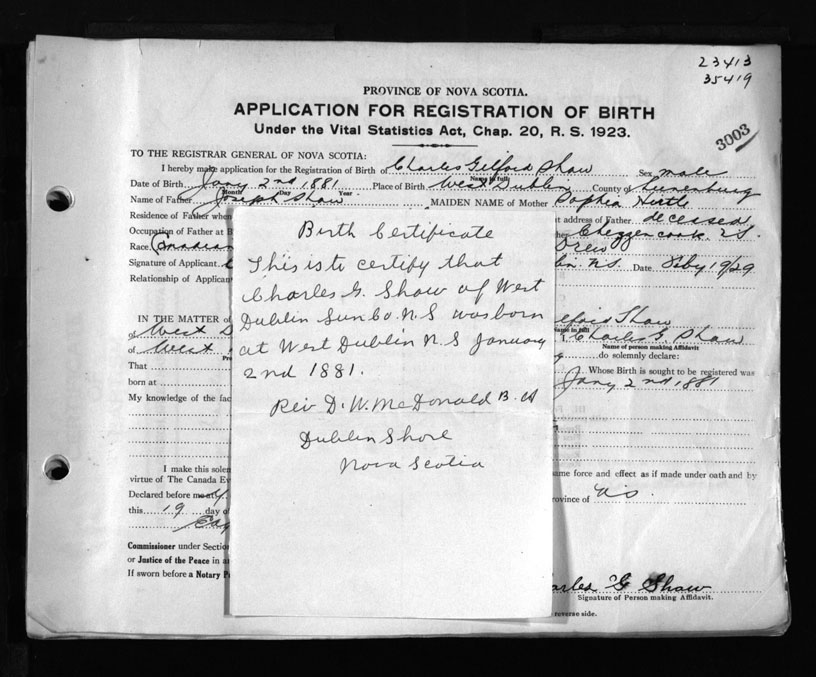 23413
35419
3003
PROVINCE OF NOVA SCOTIA.
APPLICATION FOR REGISTRATION OF BIRTH
Under the Vital Statistics Act, Chap. 20, R. S. 1923.
TO THE REGISTRAR GENERAL OF NOVA SCOTIA:
I hereby make application for the Registration of Birth of Charles Gilford Shaw Sex male
Name in full
Date of Birth Jany 2nd 1881 Place of Birth West Dublin County of Lunenburg
Month Day Year
Name of Father Joseph Shaw MAIDEN NAME of Mother Sophia Hirtle
Residence of Father when t address of Father deceased
Occupation of Father at B her Chezzencook. N.S.
Race (Canadian Drew
Signature of Applicant N.S. Date Feby 19/29
Relationship of Applican
Birth Certificate
This is to certify that
Charles G. Shaw of West
Dublin Lun. Co. N.S was born
at West Dublin N.S January
2nd 1881.
Rev D. W. McDonald B. A
Dublin Shore
Nova Scotia
IN THE MATTER of lford Shaw
Name in full
of West D I, Charles G. Shaw
Name of person making Affidavit
of West do solemnly declare:
That Whose Birth is sought to be registered was
born at Jany 2nd 1881
My knowledge of the fac
I make this solen ame force and effect as if made under oath and by
virtue of The Canada Ev
Declared before me at rovince of N.S.
this 19 day of
Commissioner under Section
or Justice of the Peace in a
If sworn before a Notary P
arles G Shaw
Signature of Person making Affidavit.
reverse side.